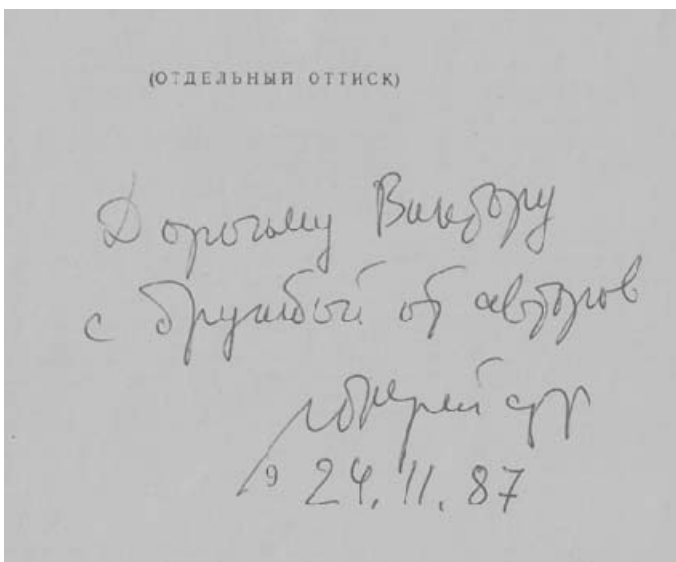 (ОТДЕЛЬНЫЙ ОТТИСК)
Дорогому Виктору
с дружбой от авторов
9 24.11.87